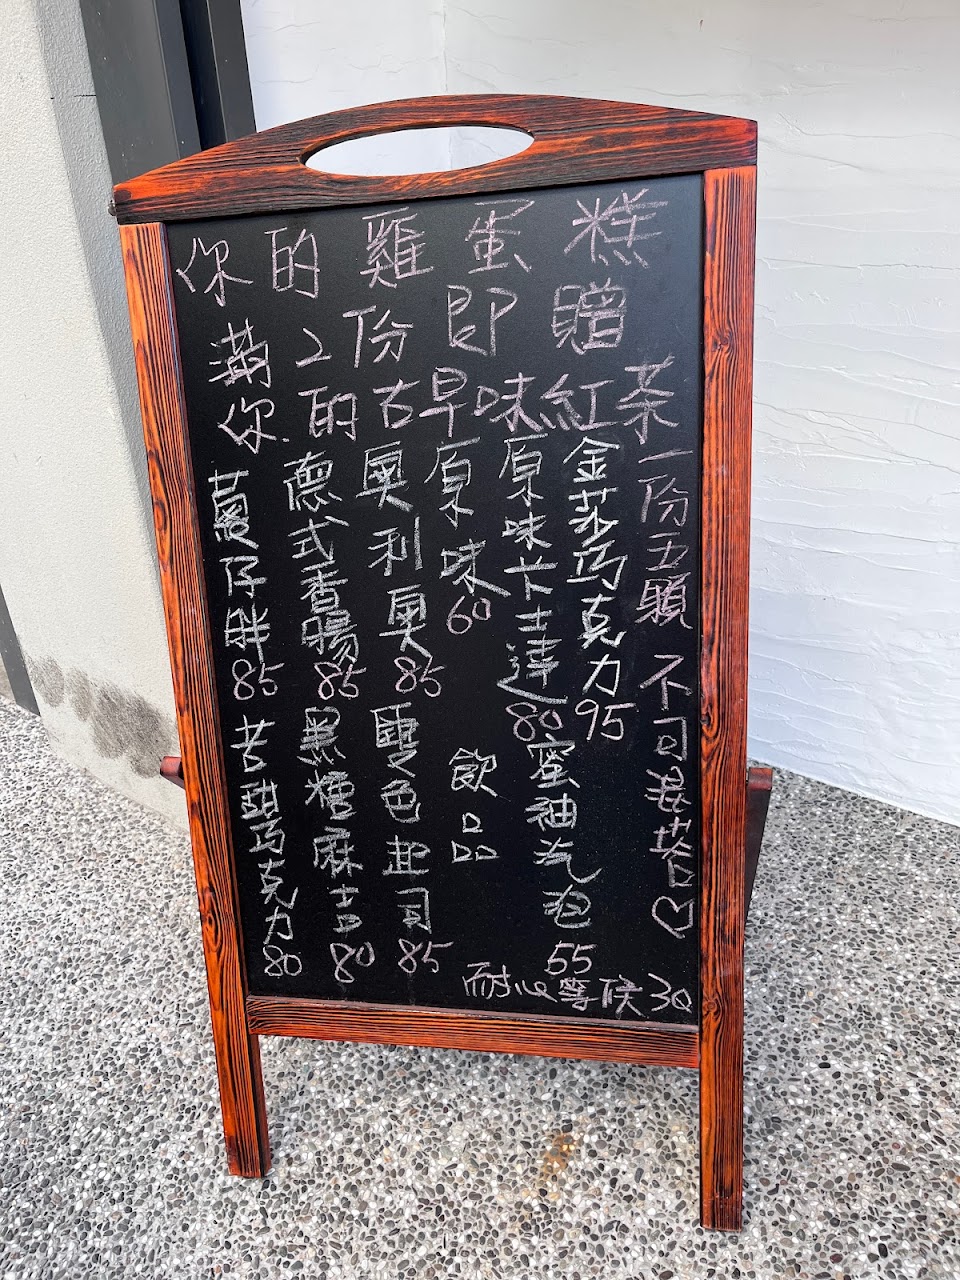 你的雞蛋糕
滿2份即贈
你的古早味紅茶
一份五顆 不可混搭♡
金莎巧克力 95
原味卡士達 80
原味 60
奧利奧 85
德式香腸 85
蔥仔胖 85
蜜油汽泡 55
飲品
雙色起司 85
黑糖麻吉 80
苦甜巧克力 80
耐心等候30